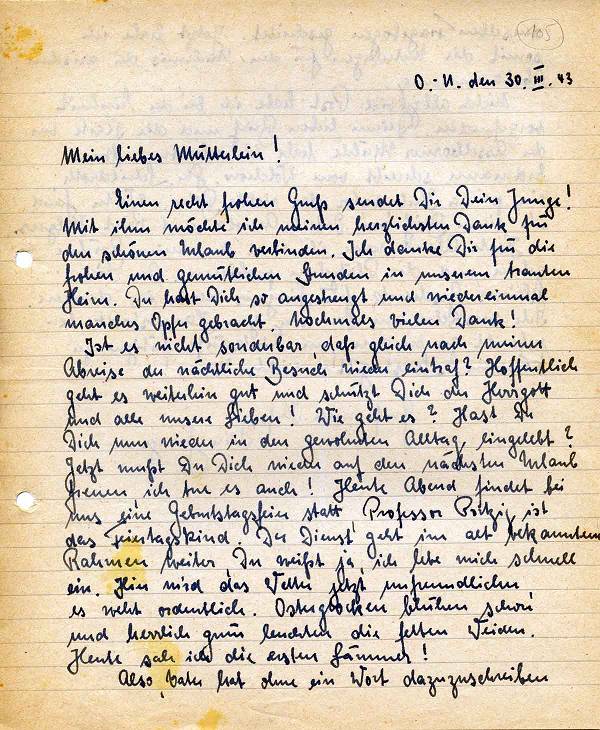 105
O.-U. den 30. III. 43
Mein liebes Mütterlein!
Einen recht frohen Gruß sendet Dir Dein Junge!
Mit ihm möchte ich meinen herzlichsten Dank für
den schönen Urlaub verbinden. Ich danke Dir für die
frohen und gemütlichen Stunden in unserem trauten
Heim. Du hast Dich so angestrengt und wiedereinmal
manches Opfer gebracht. Nochmals vielen Dank!
Ist es nicht sonderbar, daß gleich nach meiner
Abreise der nächtliche Besuch wieder eintraf? Hoffentlich
geht es weiterhin gut und schützt Dich der Herrgott
und alle unsere Lieben! Wie geht es? Hast Du
Dich nun wieder in den gewohnten Alltag eingelebt?
Jetzt mußt Du Dich wieder auf den nächsten Urlaub
freuen, ich tue es auch! Heute Abend findet bei
uns eine Geburtstagsfeier statt. Professor ist
das Feiertagskind. Der Dienst geht im alt bekannten
Rahmen weiter. Du weißt ja, ich lebe mich schnell
ein. Hier wird das Wetter jetzt unfreundlicher
es weht ordentlich. Osterglocken blühen schon
und herrlich grün leuchten die fetten Weiden.
Heute sah ich die ersten Lämmer!
Also, Vater hat ohne ein Wort dazuzuschreiben